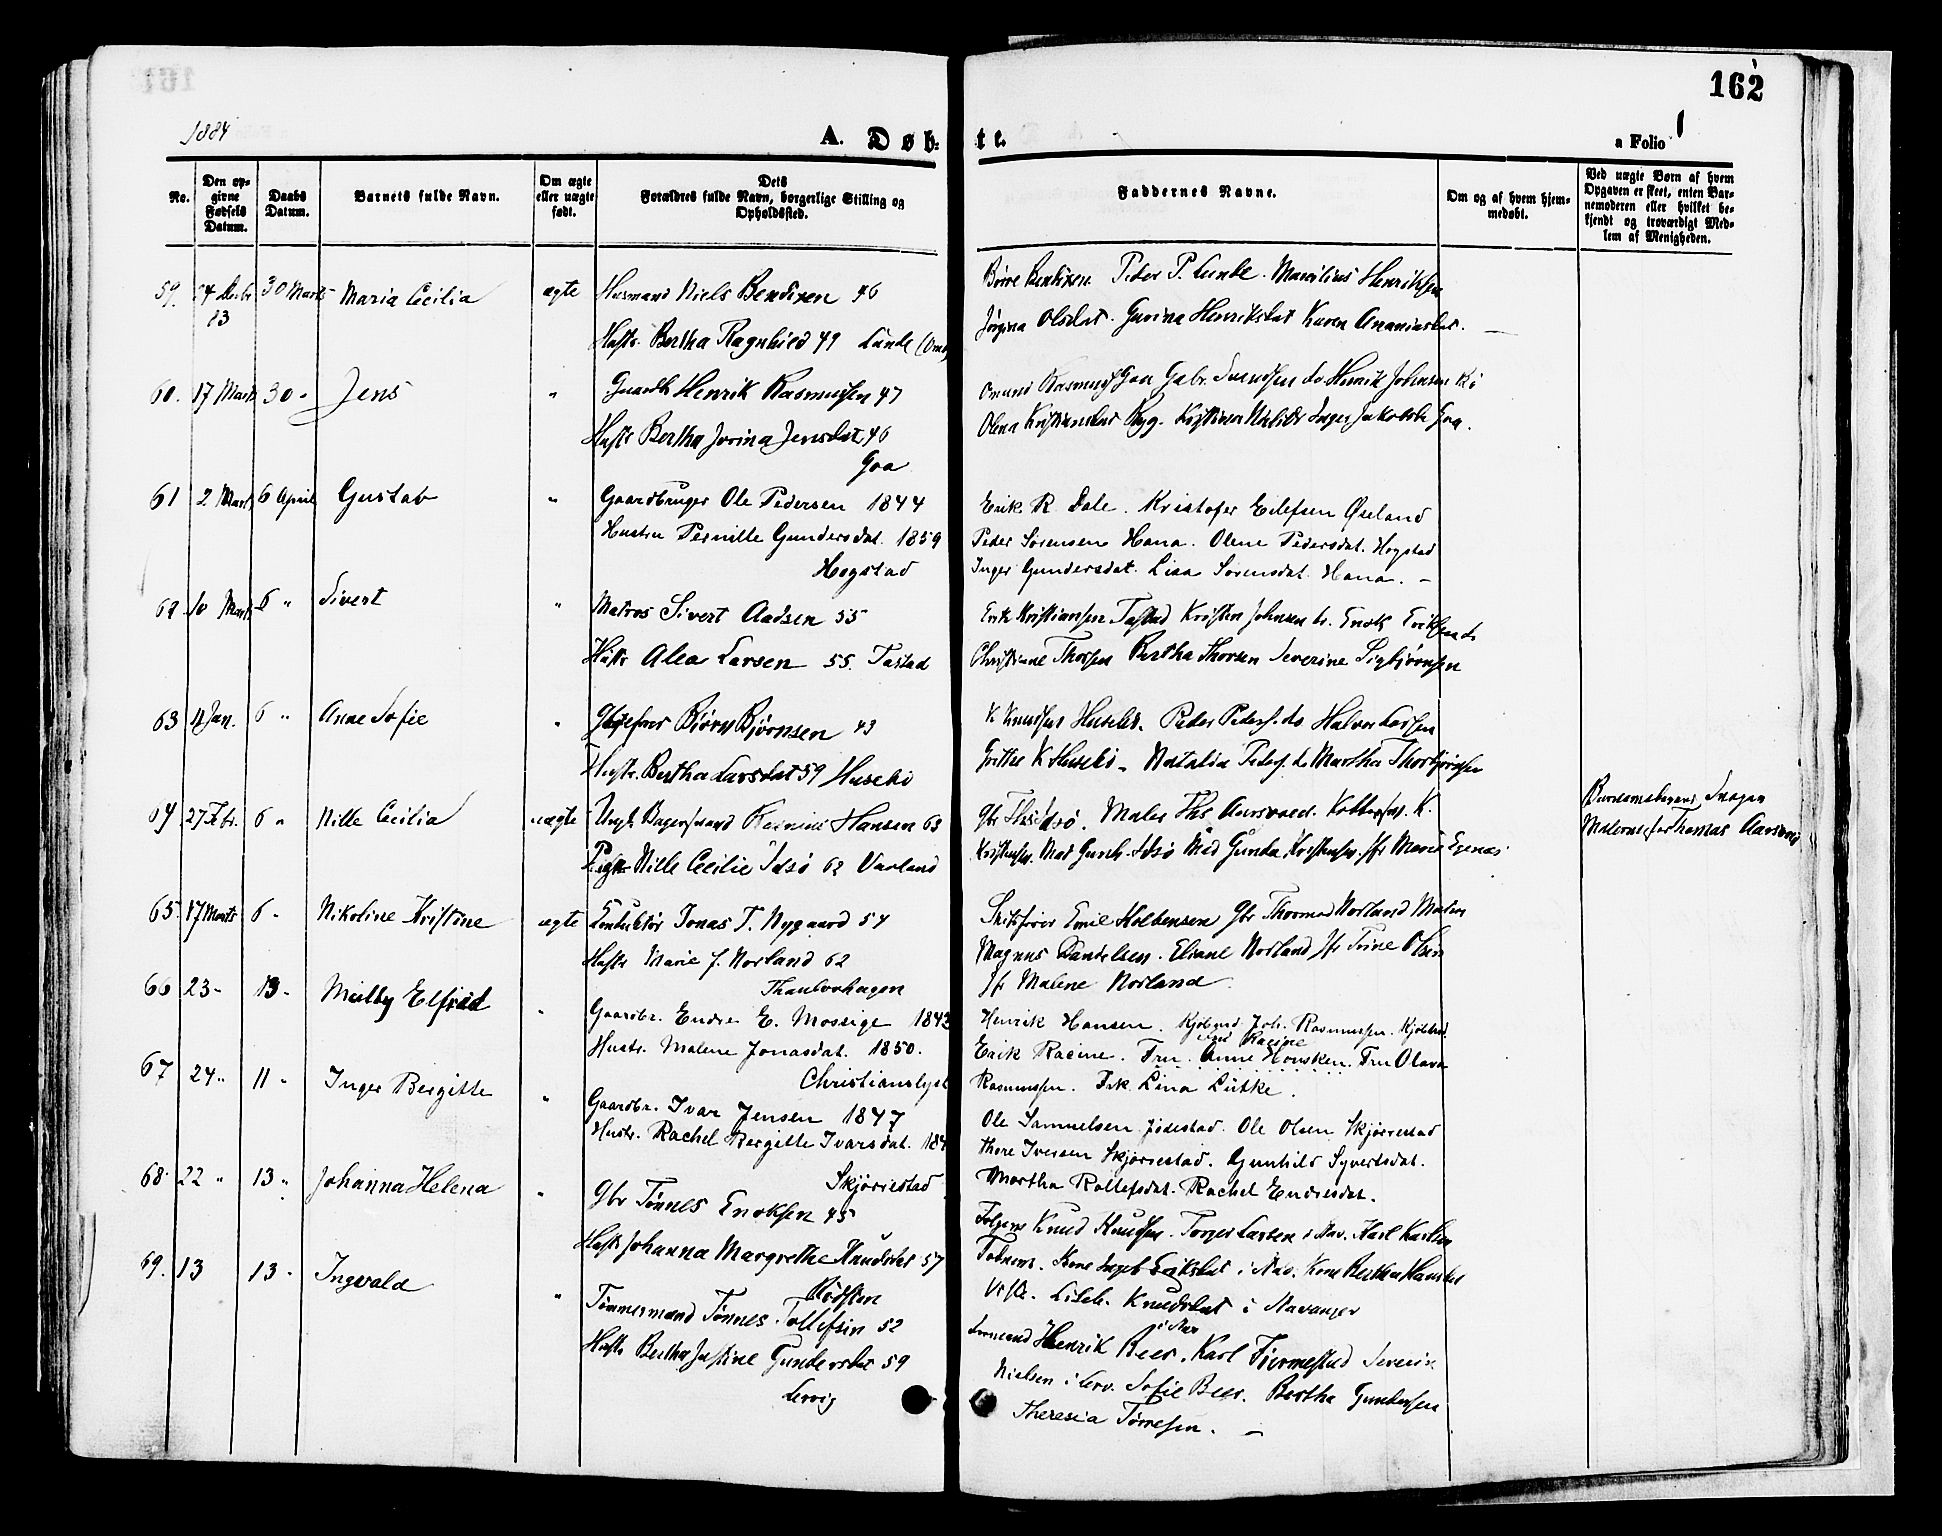 162
1884
A. Døb-
te.
a Folio 1
No.
Den op-
givne
Fødsels
Datum.
Daabs
Datum.
Barnets fulde Navn.
Om ægte
eller uægte
født.
Dets
Forældres fulde Navn, borgerlige Stilling og
Opholdssted.
Faddernes Navne.
Om og af hvem hjem-
medøbt.
Ved uægte Børn af hvem
Opgaven er skeet, enten Bar-
nemoderen eller hvilket be-
kjendt og troværdigt Med-
lem af Menigheden.
59. 30 Marts Maria Cecilia ægte Husmand Niels Bendixen 46
83
Hustr. Bertha Ragnhild 49 Lunde
Børre Bendixen Peder P. Lunde. Henriksen
Jørgina Olsdat. Gurina Henriksdat Karen Ananiasdat. —
60. 17 Marts 30 " Jens " Gaardb Henrik Rasmussen 47
Hustr Bertha Jorina Jensdat 46
Goa
Omund Rasmuss Goa Gabr. Svendsen do Henrik Johnsen
Olena Kristiansdat Ryg. Inger Jakobsdt Goa.
61 2 Marts 6 April Gustav " Gaardbruger Ole Pedersen 1844
Hustru Pernille Gundersdat. 1859
Hogstad
Erik R Dale. Kristofer Eilefsen Øseland
Peder Sørensen Hana. Olene Pedersdat. Hogstad
Inger Gundersdat. Lisa Sørensdat. Hana. —
62 10 Marts 6 " Sivert " Matros Sivert Aadsen 55
Hustr Alea Larsen 55. Tastad
Erik Kristiansen Tastad Kristen Johnsen do. Enok Eriksen do
Christiane Thorsen Bertha Thorsen Severine Sigbjørnsen
63 4 Jan. 6 " Anne Sofie " Bjørn Bjørnsen 43
Hustr. Bertha Larsdat 59 Husebø
K Knudsen Husebø. Peder Peders. do Halvor Larsen
Grethe K Husebø - Natalia Peders. do Martha Thorbjørnsen
64 27 Febr. 6 " Nille Cecilia uægte Ungk. Bagersvend Rasmus Hansen 63
Pige Nille Cecilie Idsø 62 Varland
Gbr Ths Idsø. Maler Ths Aarsvoed. K.
Kristensen. Mad Gunh. Idsø Mad Gunda Kristensen. Jfr Marie Egenæs
Barnemoderens Svoger
Malermester Thomas Aarsvoed
65. 17 Marts 6 " Nikoline Kristine ægte Konduktør Jonas T. Nygaard 54
Hustr Marie J. Norland 62
Thaulovhagen
Skibsfører Emil Holbensen Gbr Thormod Norland Maler
Magnus Danielsen. Eliane Norland Jfr Trine Olsen
Jfr Malene Norland.
66 23 - 13 - Milly Elfrid " Gaardbr. Endre E. Mossige 1843
Hustr. Malene Jonasdat. 1850.
Christianslyst
Henrik Hansen. Kjøbmd Joh. Rasmussen. Kjøbmd.
Erik Racine. Fru Racine Anne Housken. Fru Olava
Rasmussen. Frk. Lina Lütke.
67 24 " 11 " Inger Bergitte " Gaardbr. Ivar Jensen 1847
Hustr. Rachel Bergitte Ivarsdat.
Skjørestad
Ole Samuelsen Jødestad. Ole Olsen Skjørrestad
Thore Iversen Skjørrestad. Gunhild Syvertsdat.
Martha Rollefsdat. Rachel Endresdat.
68. 22 " 13 " Johanna Helena " Gbr Tønnes Enoksen 45
Hustr Johanna Margrethe Knudsdat 57
Rødsten
Knud Knudsen. Torger Larsen i Stav. Karl Karlsen
Kone Ingeb Eriksdat i Stav. Kone Bertha Hansdat
Liseb. Knudsdat i Stavanger
69. 13 13 " Ingvald " Tømmermand Tønnes Tollefsen 52
Hustr Bertha Justine Gundersdat 59
Lervig
Henrik Beer i Stav. Karl Tjermestad Severin
Nielsen i Lerv. Sofie Beer. Bertha Gundersen
Theresia Tørresen. —